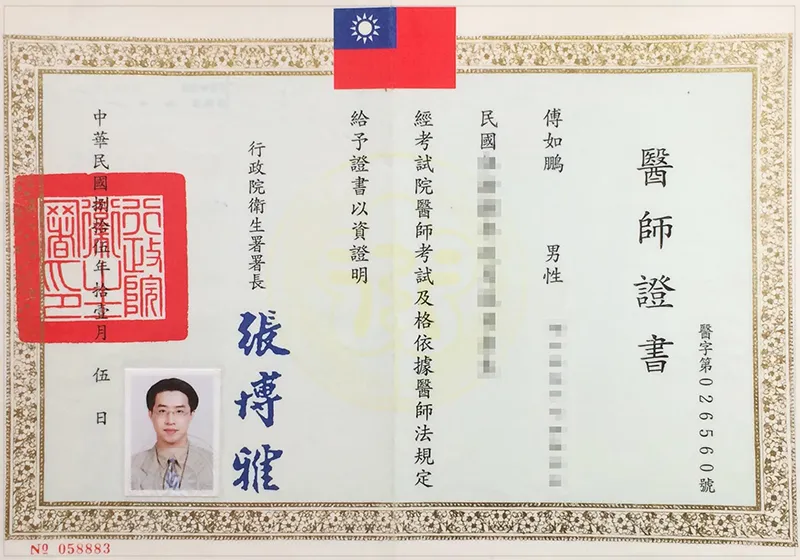 醫師證書
醫字第026560號
傅如鵬 男性
民國
經考試院醫師考試及格依據醫師法規定
給予證書以資證明
行政院衛生署署長
張博雅
中華民國捌拾伍年拾壹月伍日
行政院衛生署印
№ 058883